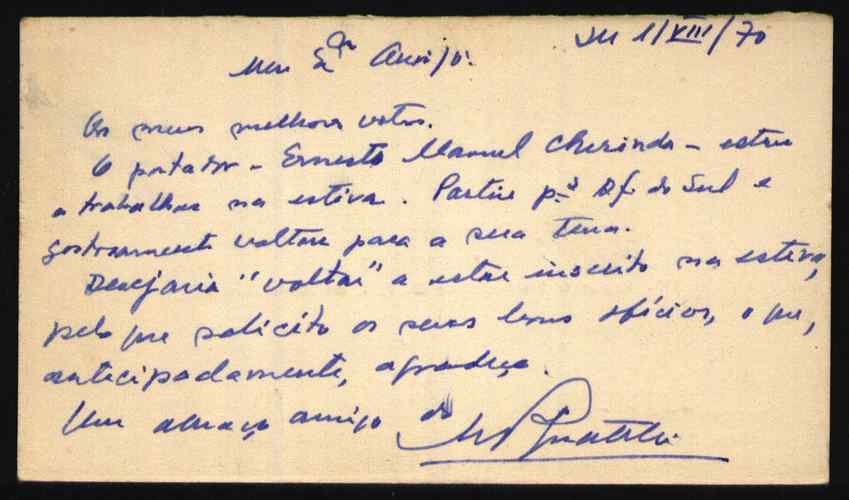 1/VIII/70
Meu Exº Amigo:
Os meus melhores votos.
O portador – Ernesto Manuel Cherinda – esteve
a trabalhar na estiva. Partiu pª Af. do Sul e
gostosamente voltou para a sua terra.
Desejaria "voltar" a estar inscrito na estiva,
pelo que solicito os seus bons ofícios, o que,
antecipadamente, agradeço.
Um abraço amigo do